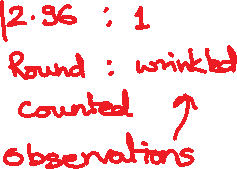 2.96 : 1
Round : wrinkled
counted
observations